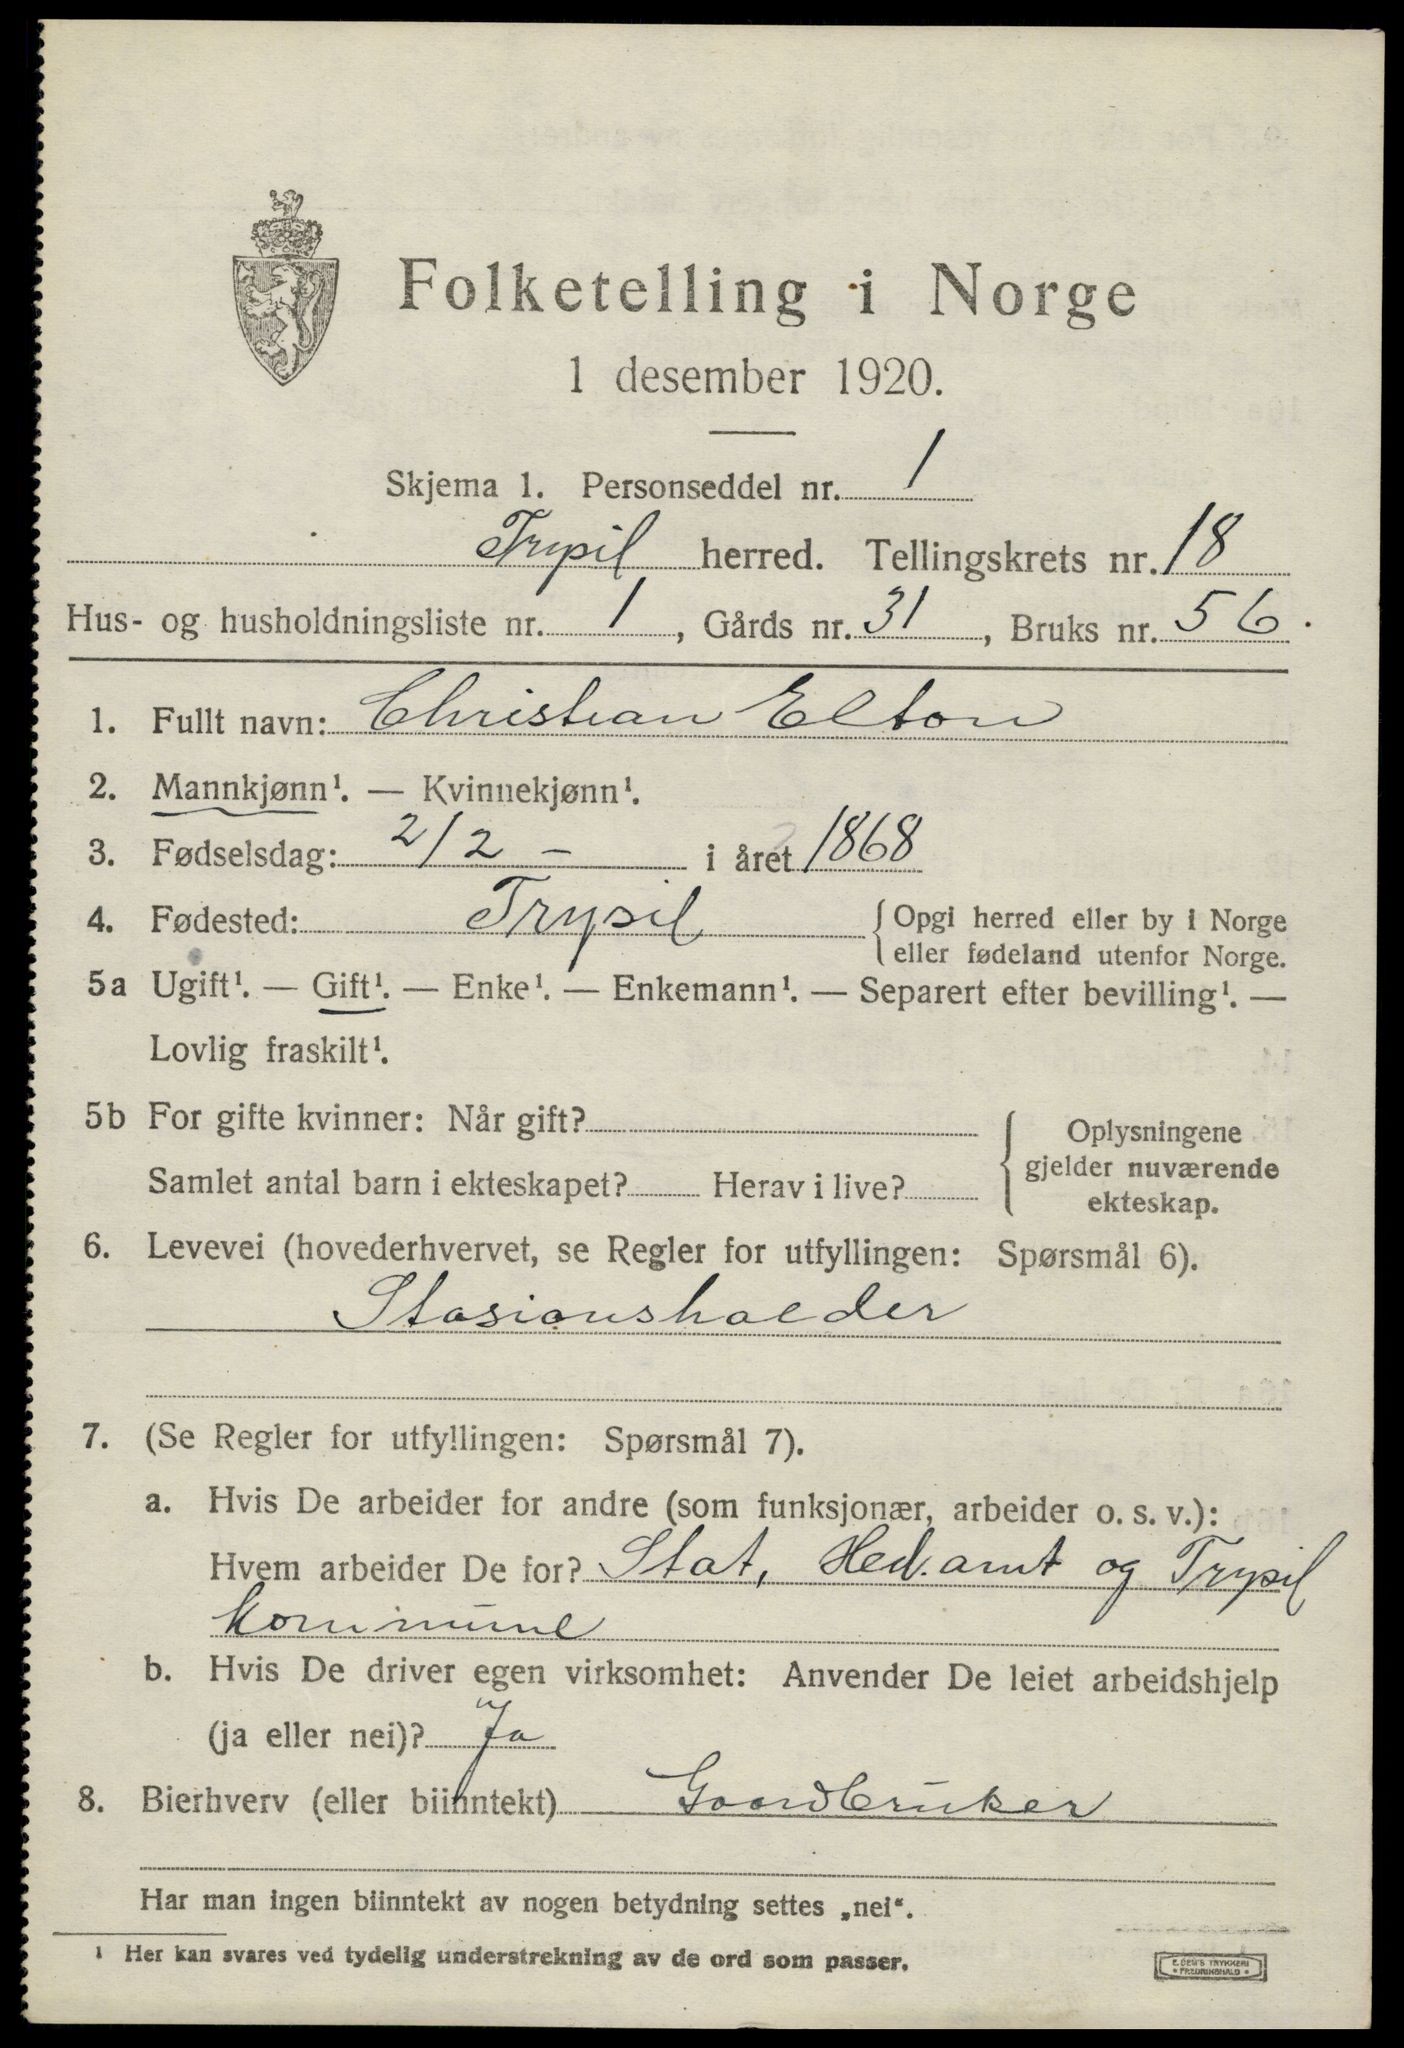 Folketelling i Norge
1 desember 1920.
Skjema 1. Personseddel nr. 1
Trysil herred. Tellingskrets nr. 18
Hus- og husholdningsliste nr. 1, Gårds nr. 31, Bruks nr. 56.
1. Fullt navn: Christian Elton
2. Mannkjønn¹. — Kvinnekjønn¹.
3. Fødselsdag: 2/2 – i året 1868
4. Fødested: Trysil {Opgi herred eller by i Norge
eller fødeland utenfor Norge.
5a Ugift¹. — Gift¹. — Enke¹. — Enkemann¹. — Separert efter bevilling¹. —
Lovlig fraskilt¹.
5b For gifte kvinner: Når gift?
Samlet antal barn i ekteskapet? Herav i live?
Oplysningene
gjelder nuværende
ekteskap.
6. Levevei (hovederhvervet, se Regler for utfyllingen: Spørsmål 6).
Stasionsholder
7. (Se Regler for utfyllingen: Spørsmål 7).
a. Hvis De arbeider for andre (som funksjonær, arbeider o. s. v.):
Hvem arbeider De for? Stat, Hed. amt og Trysil
kommune
b. Hvis De driver egen virksomhet: Anvender De leiet arbeidshjelp
(ja eller nei)? Ja
8. Bierhverv (eller biinntekt) Goardbruker
Har man ingen biinntekt av nogen betydning settes „nei“.
¹ Her kan svares ved tydelig understrekning av de ord som passer.
E. SEM'S TRYKKERI
• FREDRIKSHALD •